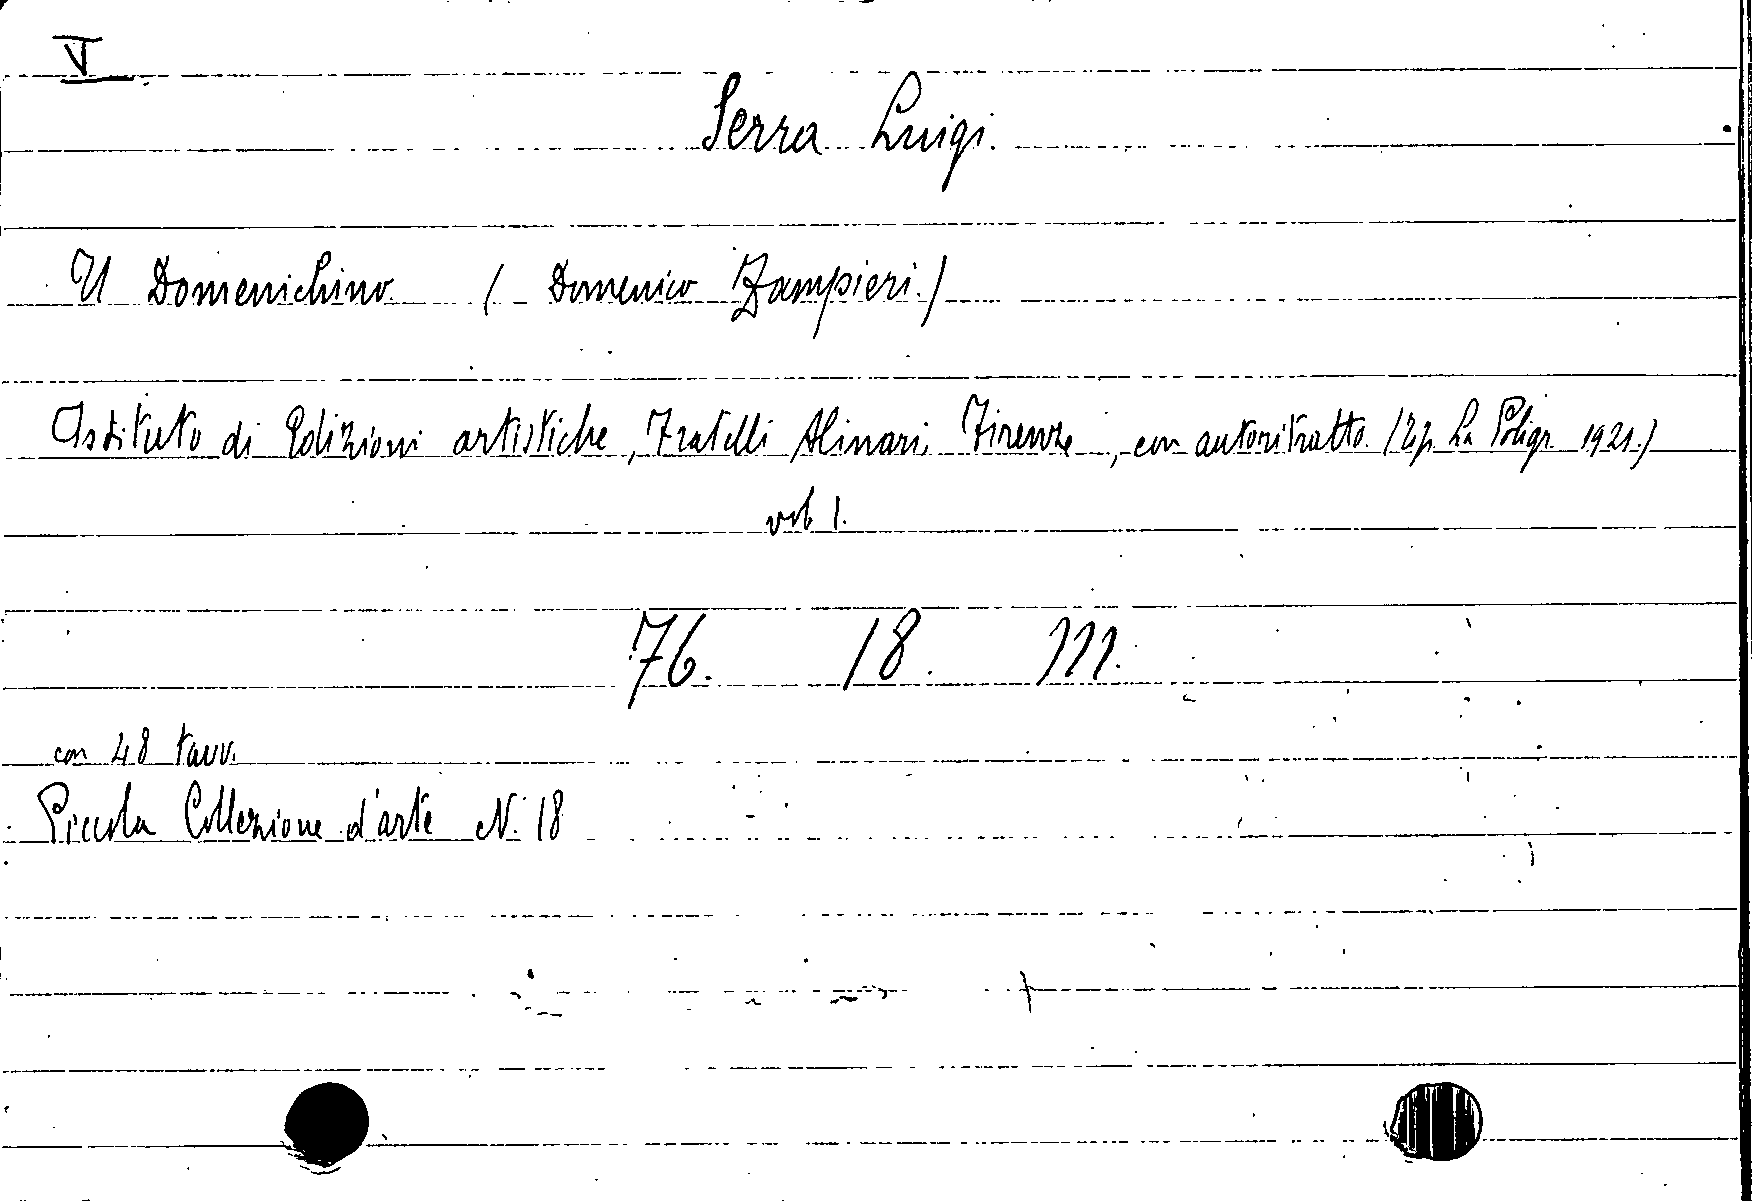 V
Serra Luigi.
Il Domenichino (Domenico Zampieri.)
Istituto di Edizioni artistiche, Fratelli Alinari, Firenze, con autoritratto. (Tip. La Poligr. 1921.)
vol. 1.
76. 18. 111.
con 48 tavv.
Piccola Collezione d'arte N. 18